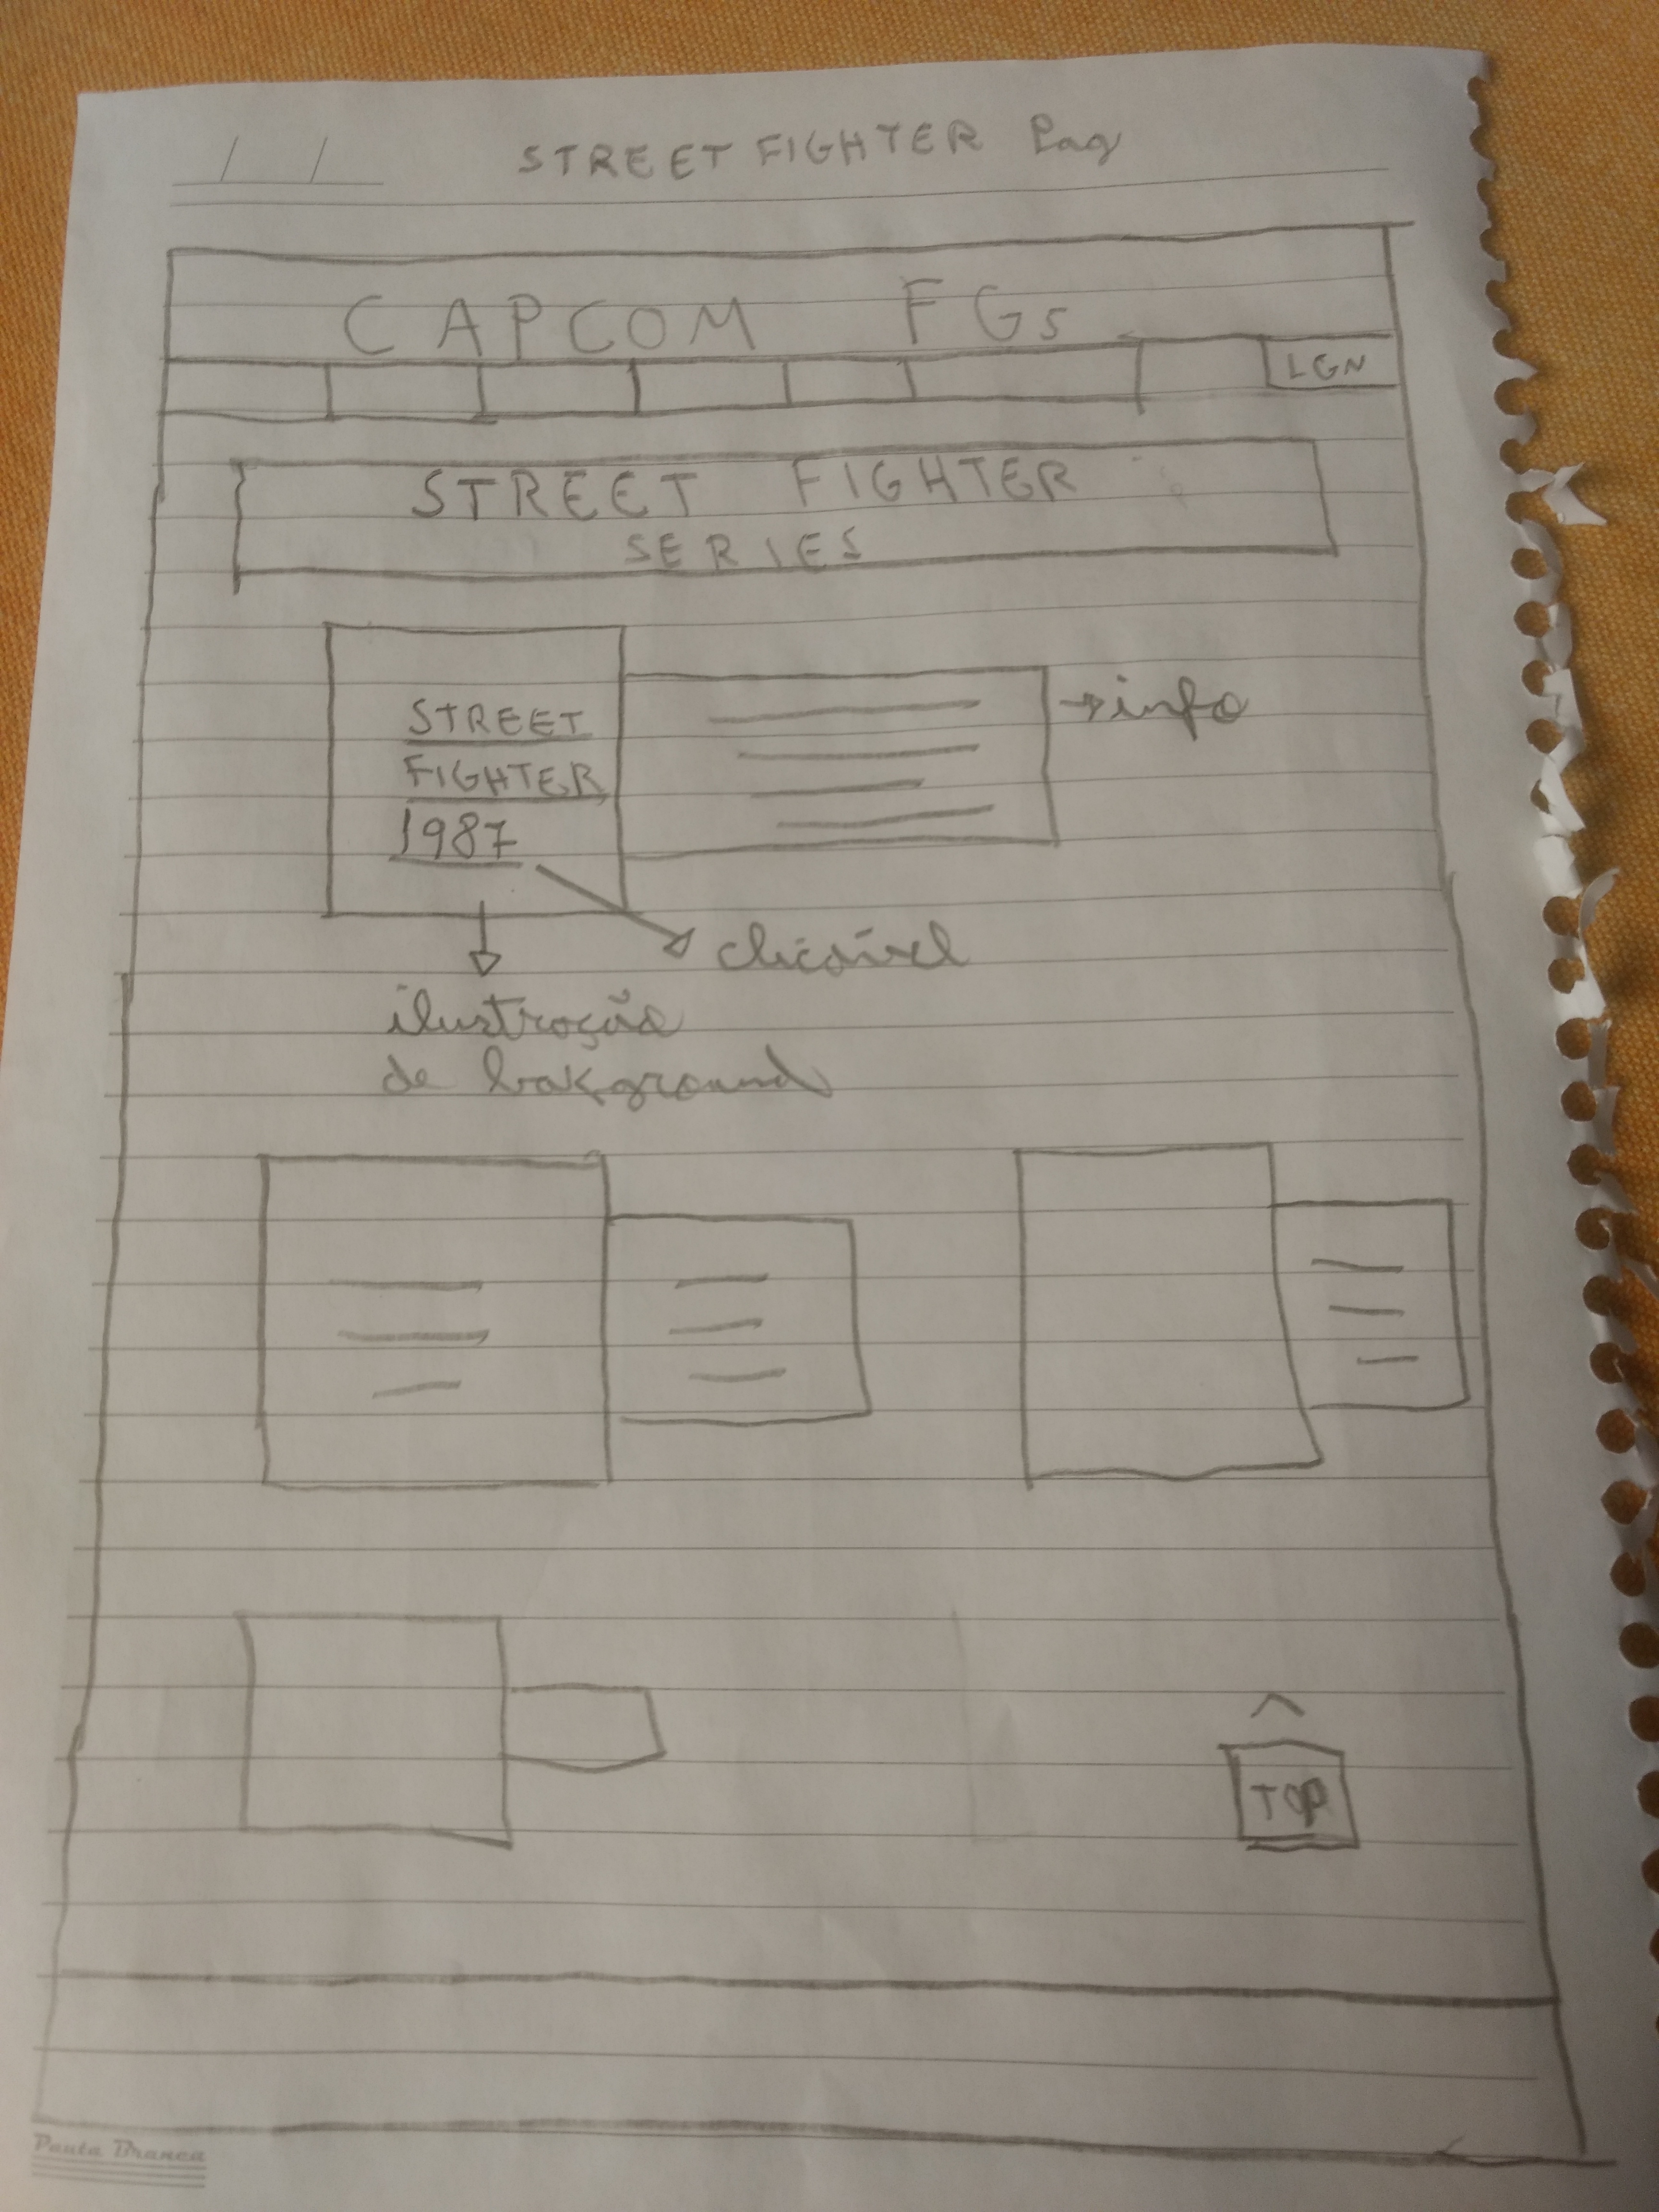 / /
STREET FIGHTER Pag
CAPCOM FGs
LGN
STREET FIGHTER
SERIES
STREET
FIGHTER
1987
→ info
clicável
ilustração
de bakground
^
TOP
Pauta Branca